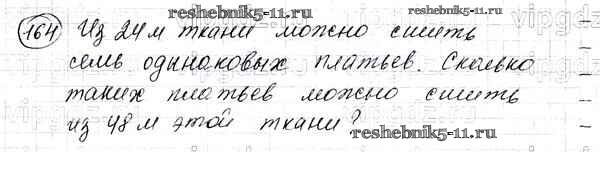 reshebnik5-11.ru
164 Из 24 м ткани можно сшить
семь одинаковых платьев. Сколько
таких платьев можно сшить
из 48 м этой ткани?
reshebnik5-11.ru